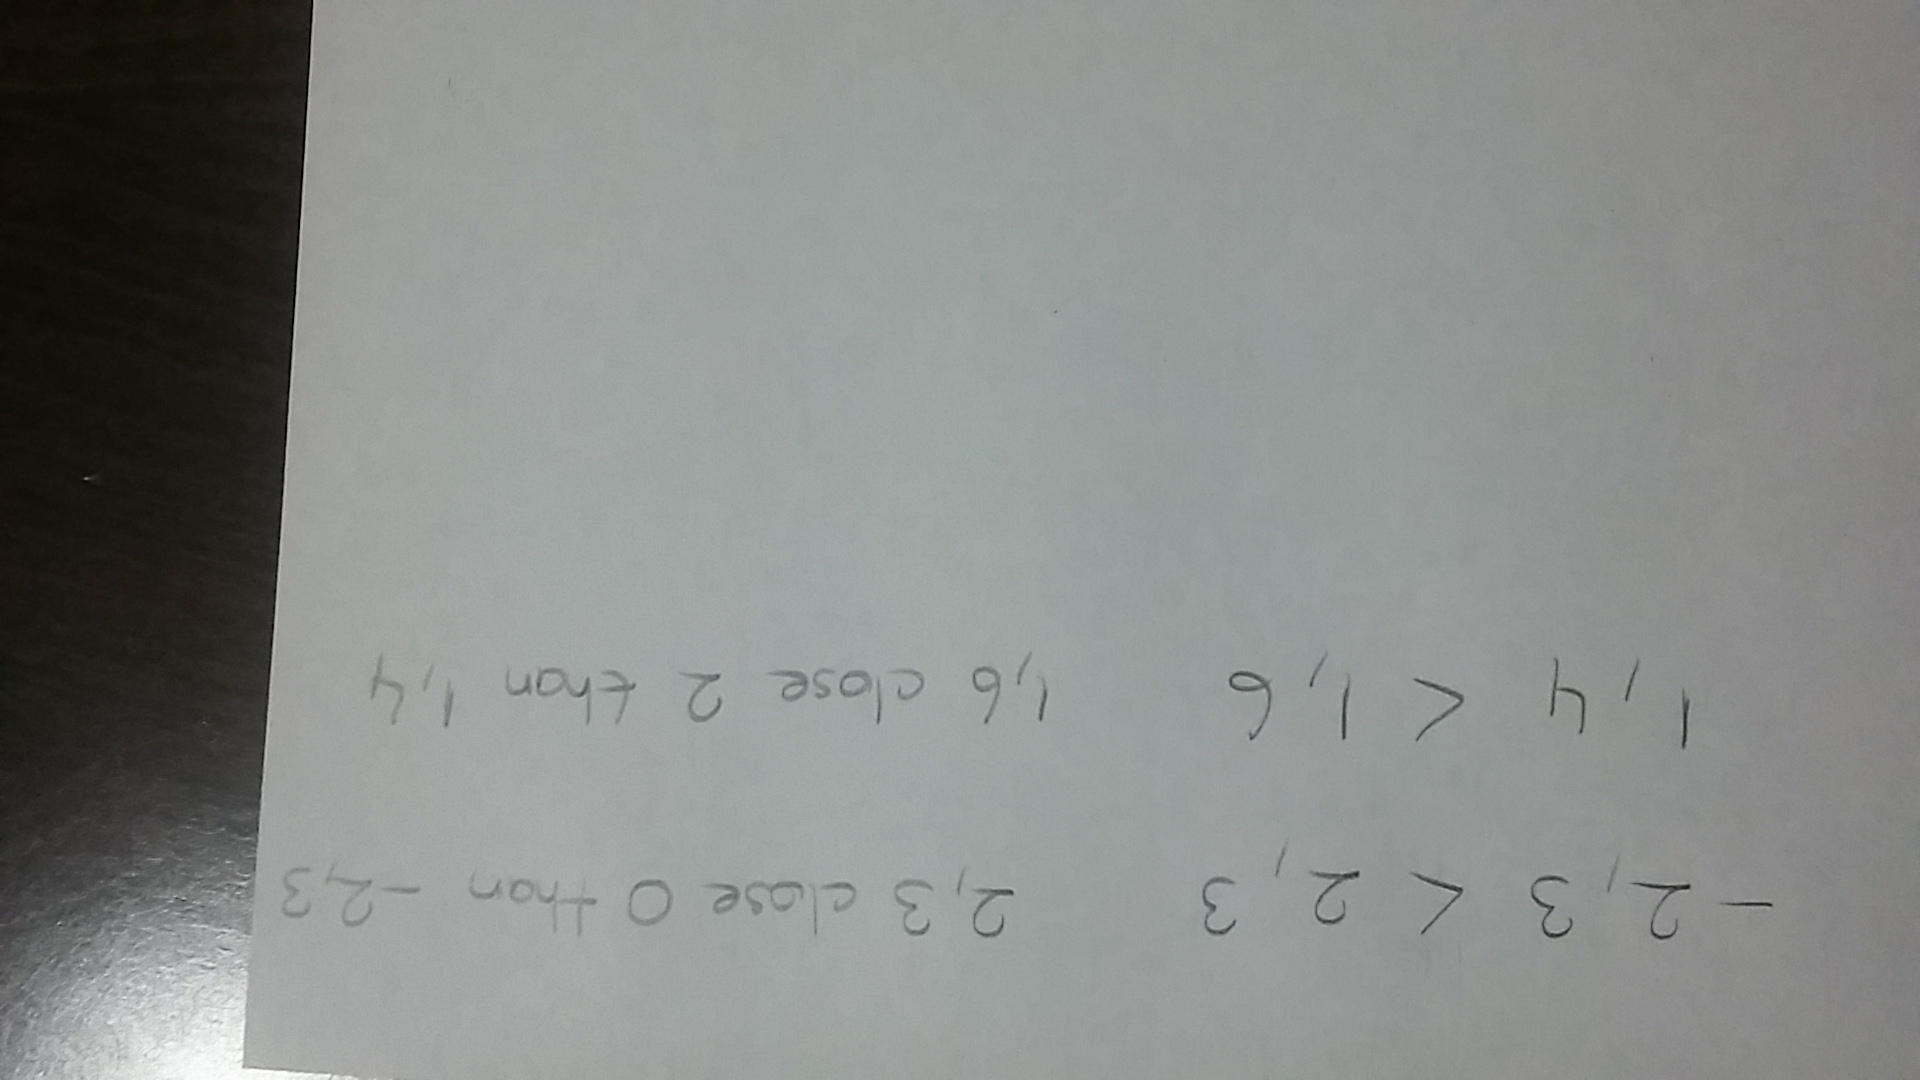 -2,3 < 2,3 2,3 close 0 than -2,3
1,4 < 1,6 1,6 close 2 than 1,4